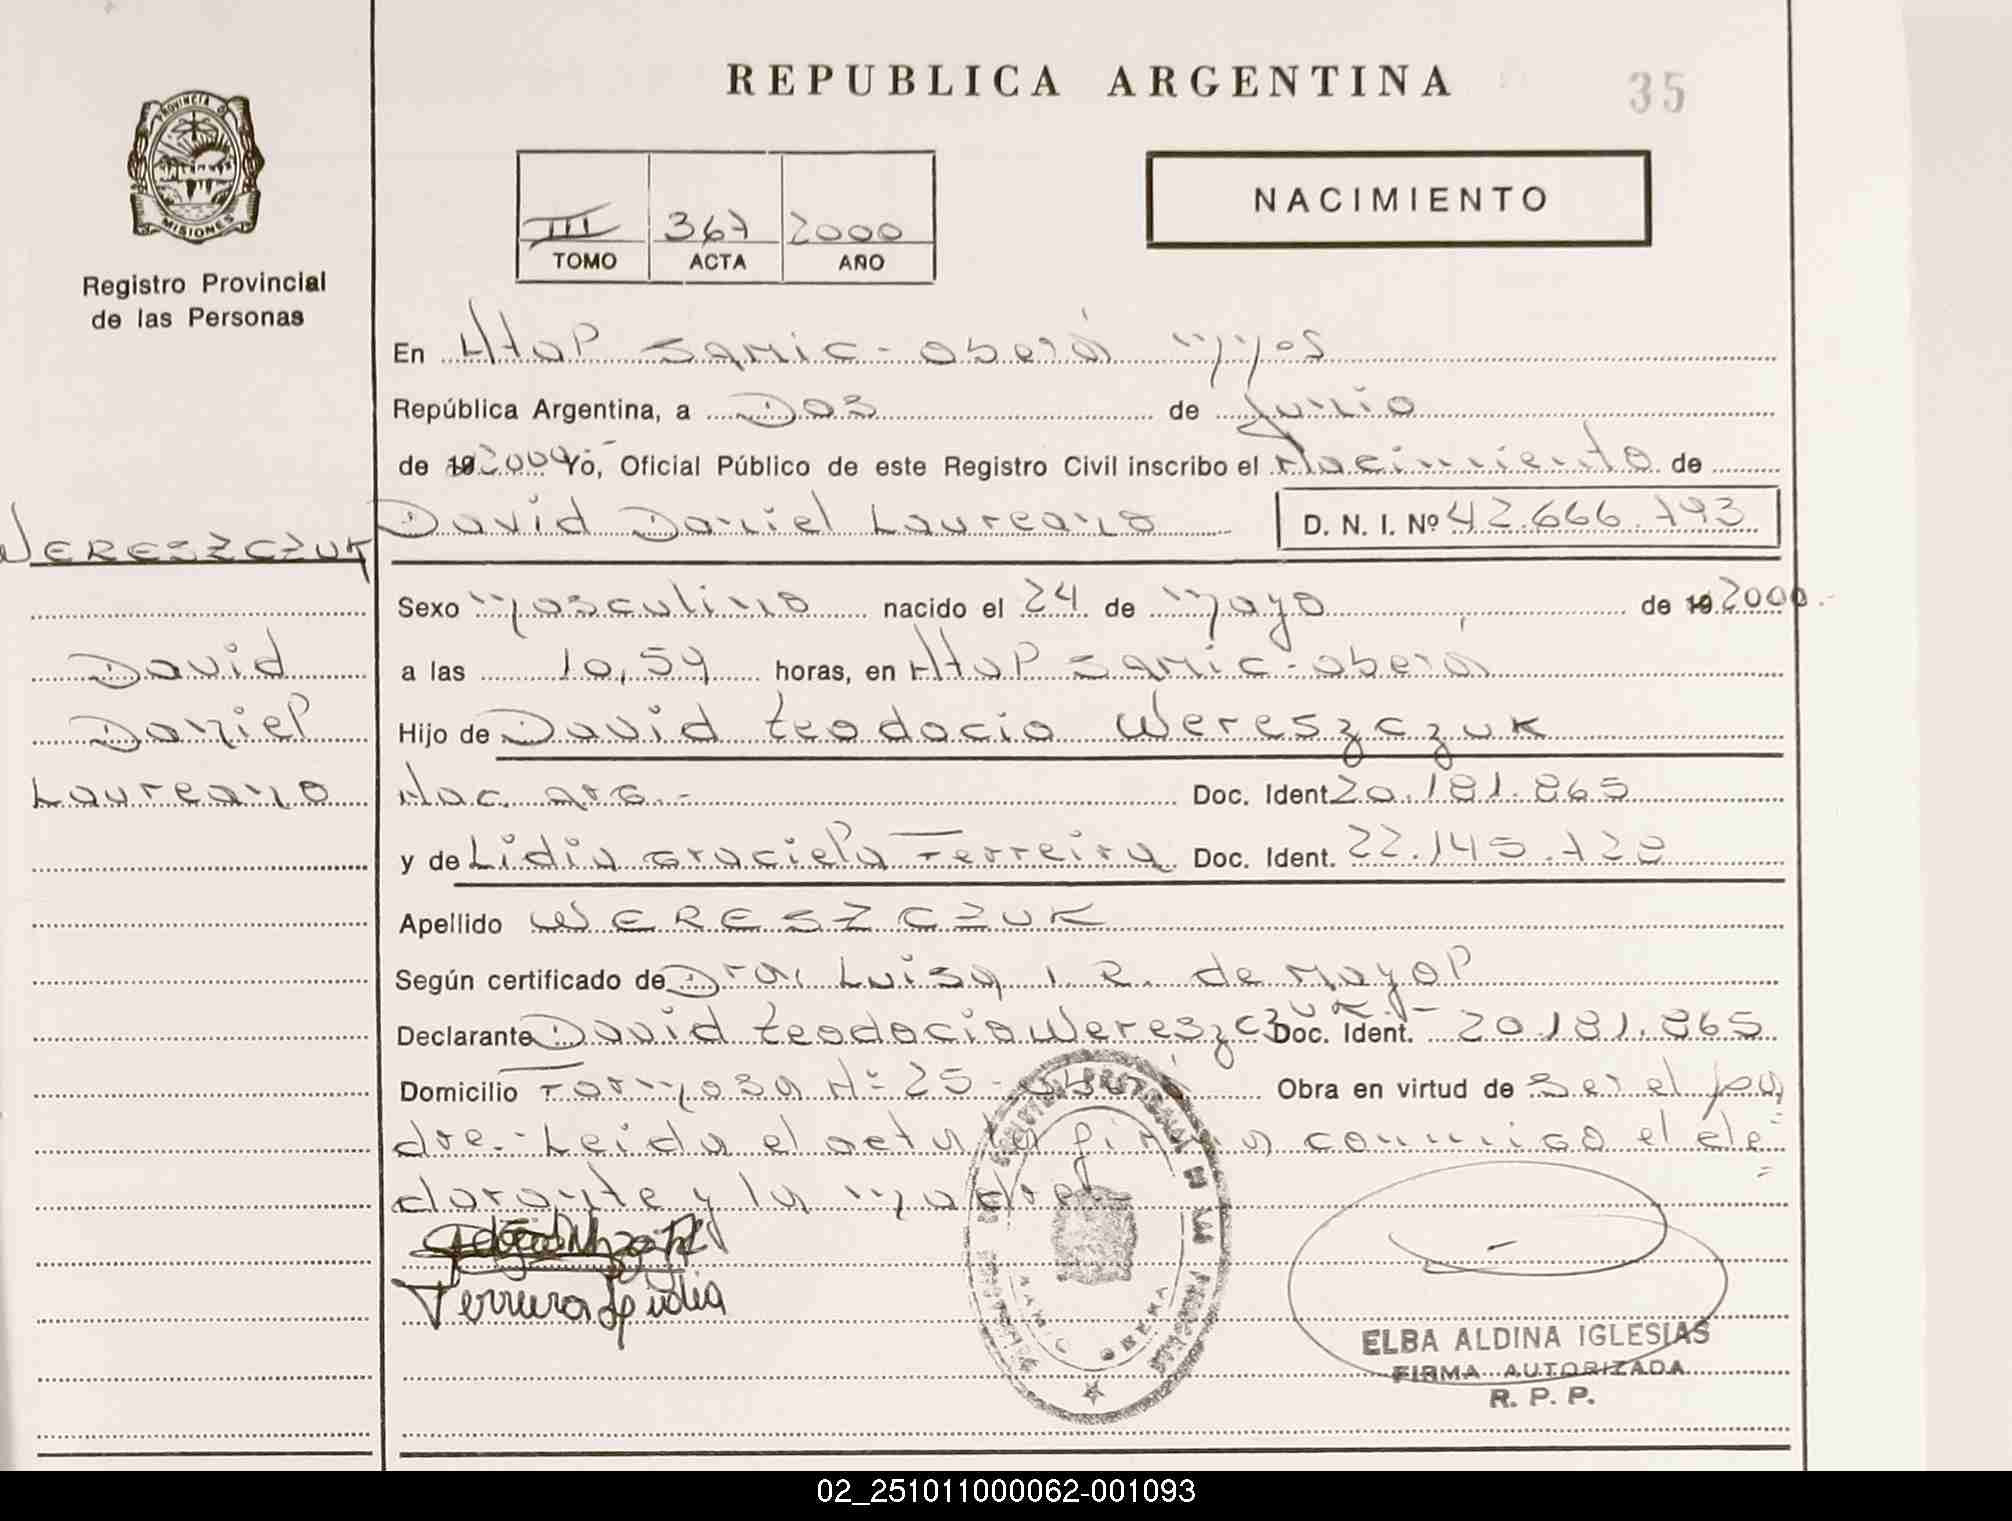 REPUBLICA ARGENTINA
35
PROVINCIA DE
MISIONES
Registro Provincial
de las Personas
III 367 2000
TOMO ACTA AÑO
NACIMIENTO
En Htal Samic - Oberá
República Argentina, a Dos de Junio
de 19 2000 Yo, Oficial Público de este Registro Civil inscribo el Nacimiento de
David Daniel Laureano D. N. I. Nº 42.666.793
WERESZCZUK
Sexo Masculino nacido el 24 de Mayo de 19 2000.-
David
Daniel
Laureano
a las 10,59 horas, en Htal Samic - Oberá
Hijo de David Teodocio Wereszczuk
Nac. arg.- Doc. Ident. 20.181.865
y de Lidia Graciela Ferreira Doc. Ident. 22.145.728
Apellido WERESZCZUK
Según certificado de Dra. Luisa I. R. de Mayol
Declarante David Teodocio Wereszczuk.- Doc. Ident. 20.181.865
Domicilio Formosa Nº 25 - Oberá Obra en virtud de ser el pa
dre.- Leida el acta la firma conmigo el de=
clarante y la madre.-
Ferreira Lidia
ELBA ALDINA IGLESIAS
FIRMA AUTORIZADA
R. P. P.
02_251011000062-001093